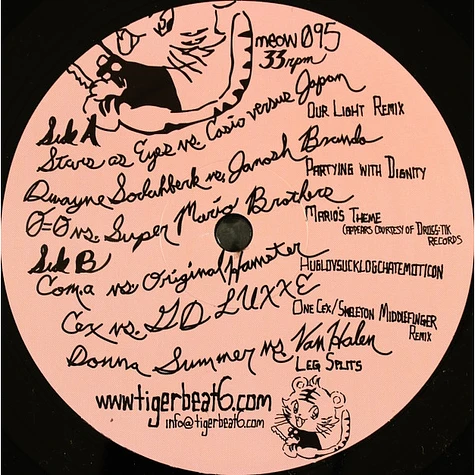 meow 095
33rpm
Side A
Stars as Eyes vs. Casio versus Japan
Our Light Remix
Dwayne Sodahberk vs. Janosh Brands
Partying with Dignity
0=0 vs. Super Mario Brothers
Mario's Theme
(appears courtesy of Dross:tik Records
Side B
Coma vs. Original Hamster
Huglovsucklogchatemoticon
Cex vs. GD LUXXE
One Cex/Skeleton Middlefinger Remix
Donna Summer vs. Van Halen
Leg Splits
www.tigerbeat6.com
info@tigerbeat6.com